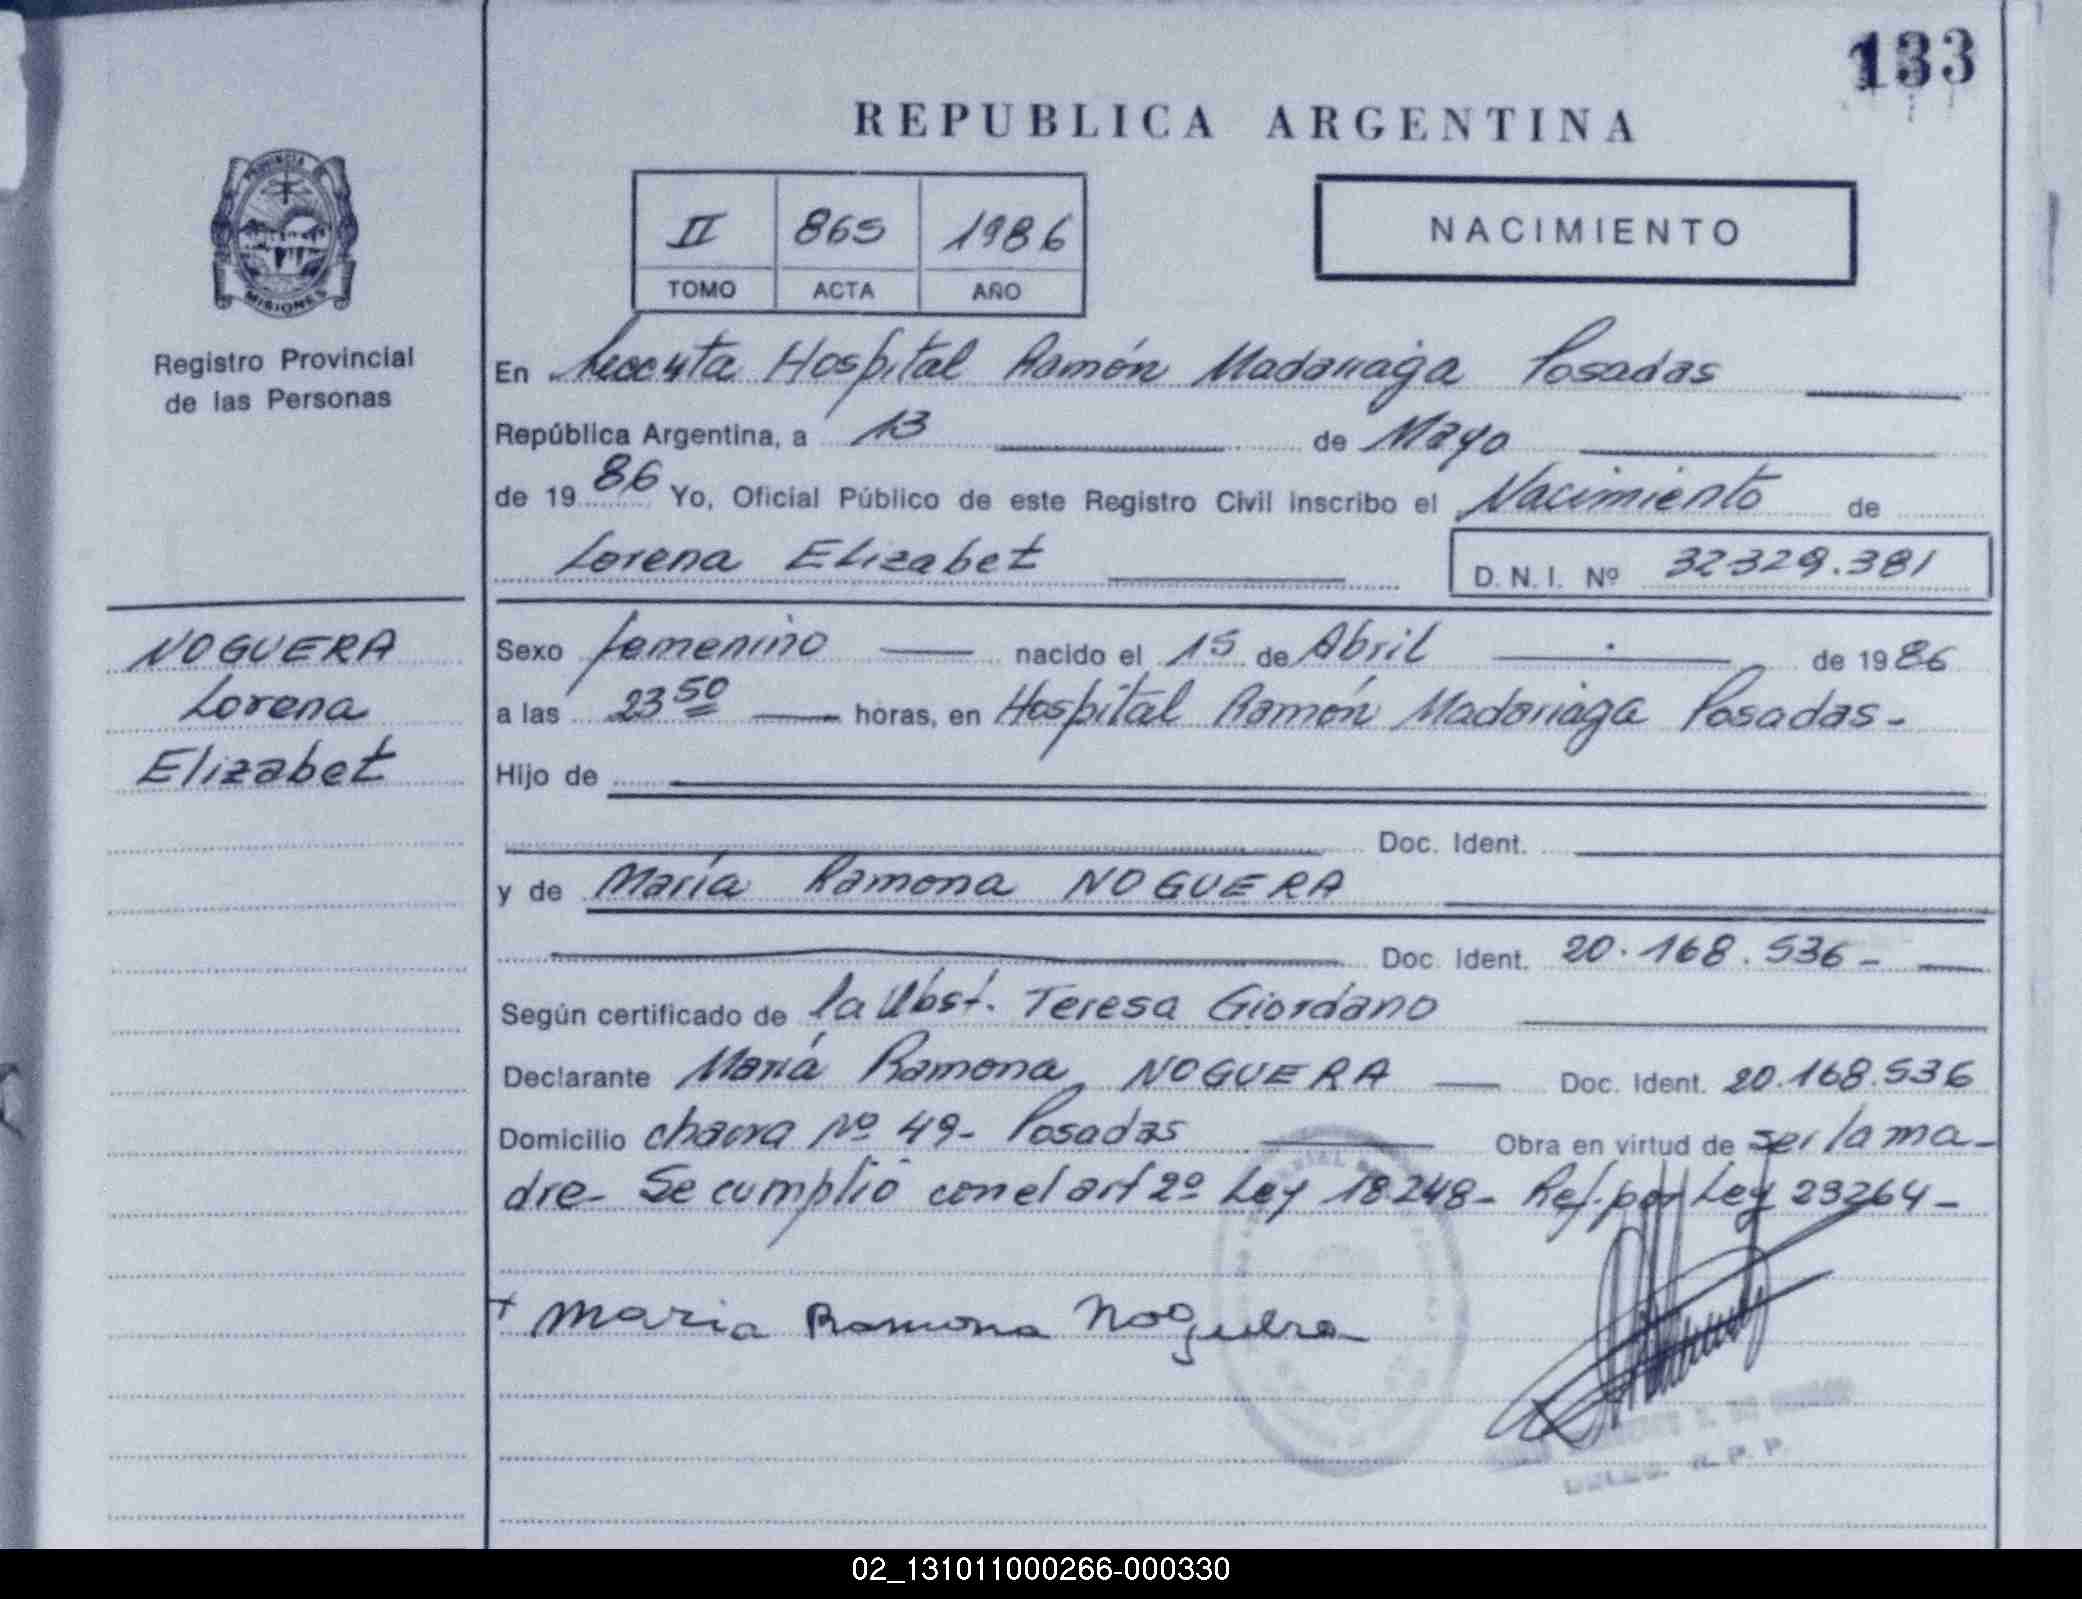 133
REPUBLICA ARGENTINA
II 865 1986
TOMO ACTA AÑO
NACIMIENTO
PROVINCIA DE
MISIONES
Registro Provincial
de las Personas
En Hospital Ramón Madariaga Posadas
República Argentina, a 13 de Mayo
de 1986 Yo, Oficial Público de este Registro Civil inscribo el Nacimiento de
Lorena Elizabet D. N. I. Nº 32329.381
NOGUERA
Lorena
Elizabet
Sexo femenino nacido el 15 de Abril de 1986
a las 23 50 horas, en Hospital Ramón Madariaga Posadas-
Hijo de
Doc. Ident.
y de María Ramona NOGUERA
Doc. Ident. 20.168.536-
Según certificado de la Obst. Teresa Giordano
Declarante María Ramona NOGUERA Doc. Ident. 20.168.536
Domicilio chacra Nº 49- Posadas Obra en virtud de ser la ma-
dre- Se cumplió con el art 2º Ley 18.248- Ref. por Ley 23264-
+ Maria Ramona Noguera
R. P. P.
02_131011000266-000330